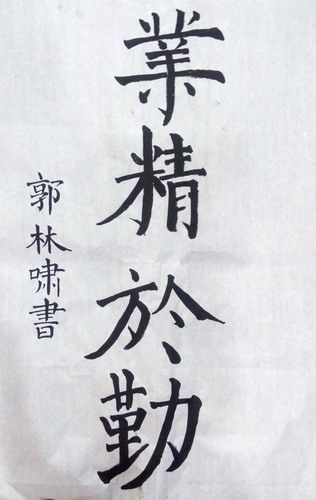 業精於勤
郭林嘯書